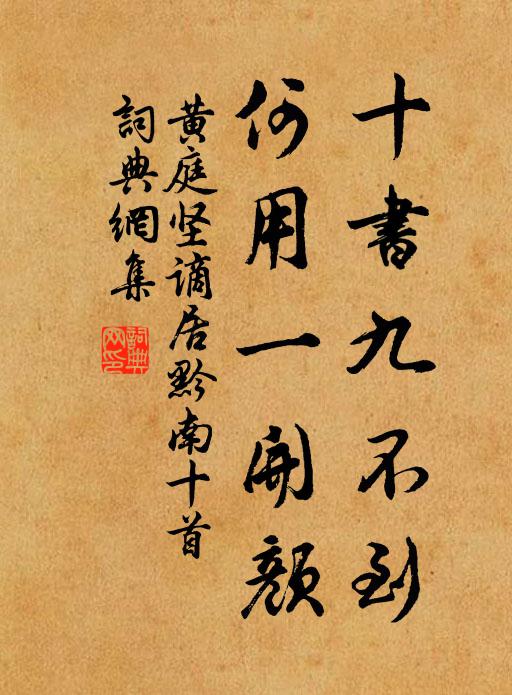 十書九不到
何用一開顏
黄庭坚謫居黔南十首
詞典網集
詞典網印